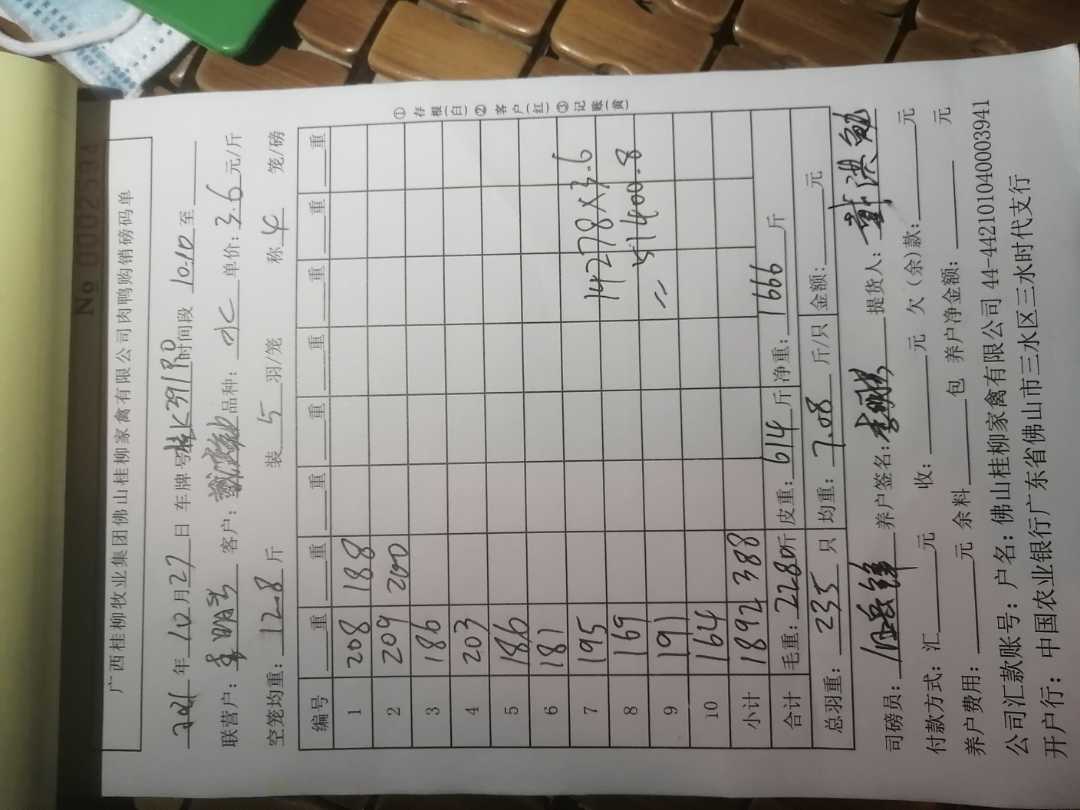 No 0002584
广西桂柳牧业集团佛山桂柳家禽有限公司肉鸭购销磅码单
2021年12月27日 车牌号桂K391P0时间段10:10至
联营户: 客户: 品种: 水 单价: 3.6元/斤
空笼均重: 12.8斤 装5羽/笼 称4笼/磅
编号 重 重 重 重 重 重 重
1 208 188
2 209 200
3 186
4 203
5 186
6 181
7 195
8 169
9 191
10 164
小计 1892 388
14278×3.6
=51400.8
合计 毛重: 2280斤 皮重: 614斤 净重: 1666斤
总羽重: 235只 均重: 7.08斤/只 金额: 元
①存根(白)②客户(红)③记账(黄)
司磅员: 养户签名: 提货人:
付款方式: 汇 元 收: 元 欠(余)款: 元
养户费用: 元 余料 包 养户净金额: 元
公司汇款账号: 户名: 佛山桂柳家禽有限公司 44-442101040003941
开户行: 中国农业银行广东省佛山市三水区三水时代支行